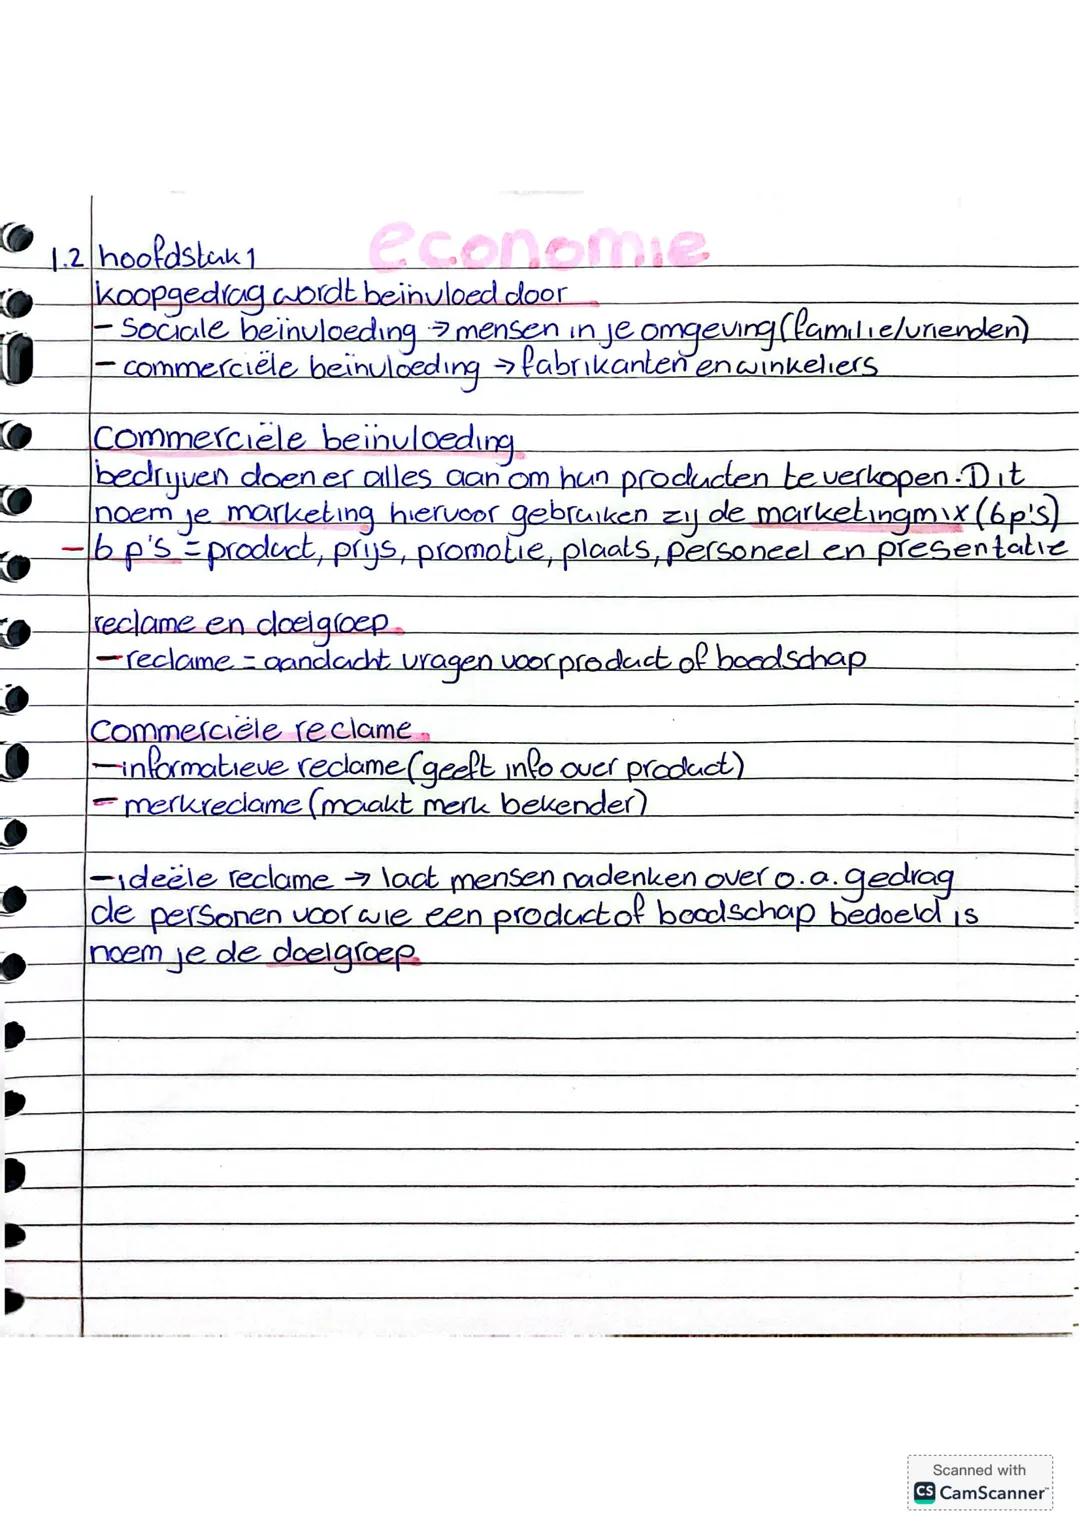 economie
1.2 hoofdstuk 1
koopgedrag wordt beïnvloed door
- Sociale beïnvloeding → mensen in je omgeving (familie/vrienden)
- commerciële beïnvloeding → fabrikanten en winkeliers
Commerciële beïnvloeding
bedrijven doen er alles aan om hun producten te verkopen. Dit
noem je marketing hiervoor gebruiken zij de marketingmix (6p's)
- 6 p's = product, prijs, promotie, plaats, personeel en presentatie
reclame en doelgroep
- reclame = aandacht vragen voor product of boodschap
Commerciële reclame
- informatieve reclame (geeft info over product)
- merkreclame (maakt merk bekender)
- ideële reclame → laat mensen nadenken over o.a. gedrag
de personen voor wie een product of boodschap bedoeld is
noem je de doelgroep
Scanned with
CS CamScanner